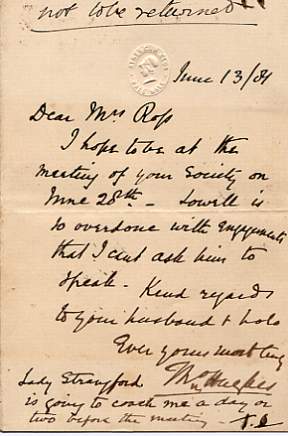 not to be returned
June 13/81
Dear Mrs Ross
I hope to be at the
meeting of your Society on
June 28th - Lowell is
so overdone with engagements
that I cant ask him to
speak - Kind regards
to your husband &
Ever yours most truly
Thos Hughes
Lady Strangford
is going to coach me a day or
two before the meeting -